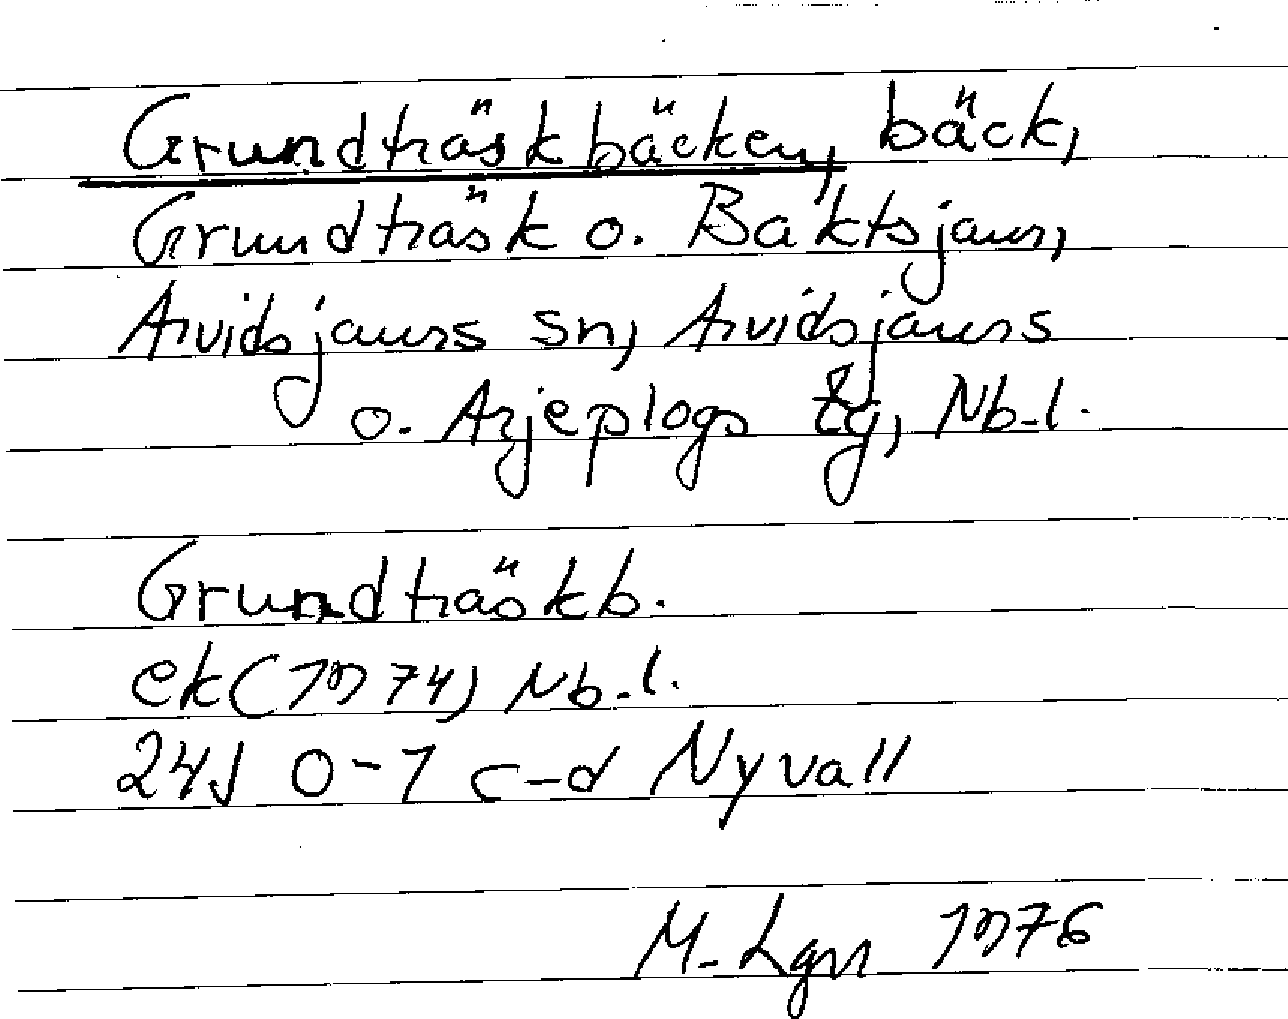 Grundträskbäcken, bäck,
Grundträsk o. Baktsjaur,
Arvidsjaurs sn, Arvidsjaurs
o. Arjeplogs tg, Nb.l.
Grundträskb.
ek (1974) Nb.l.
24J 0-1 c-d Nyvall
M. Lgn 1976